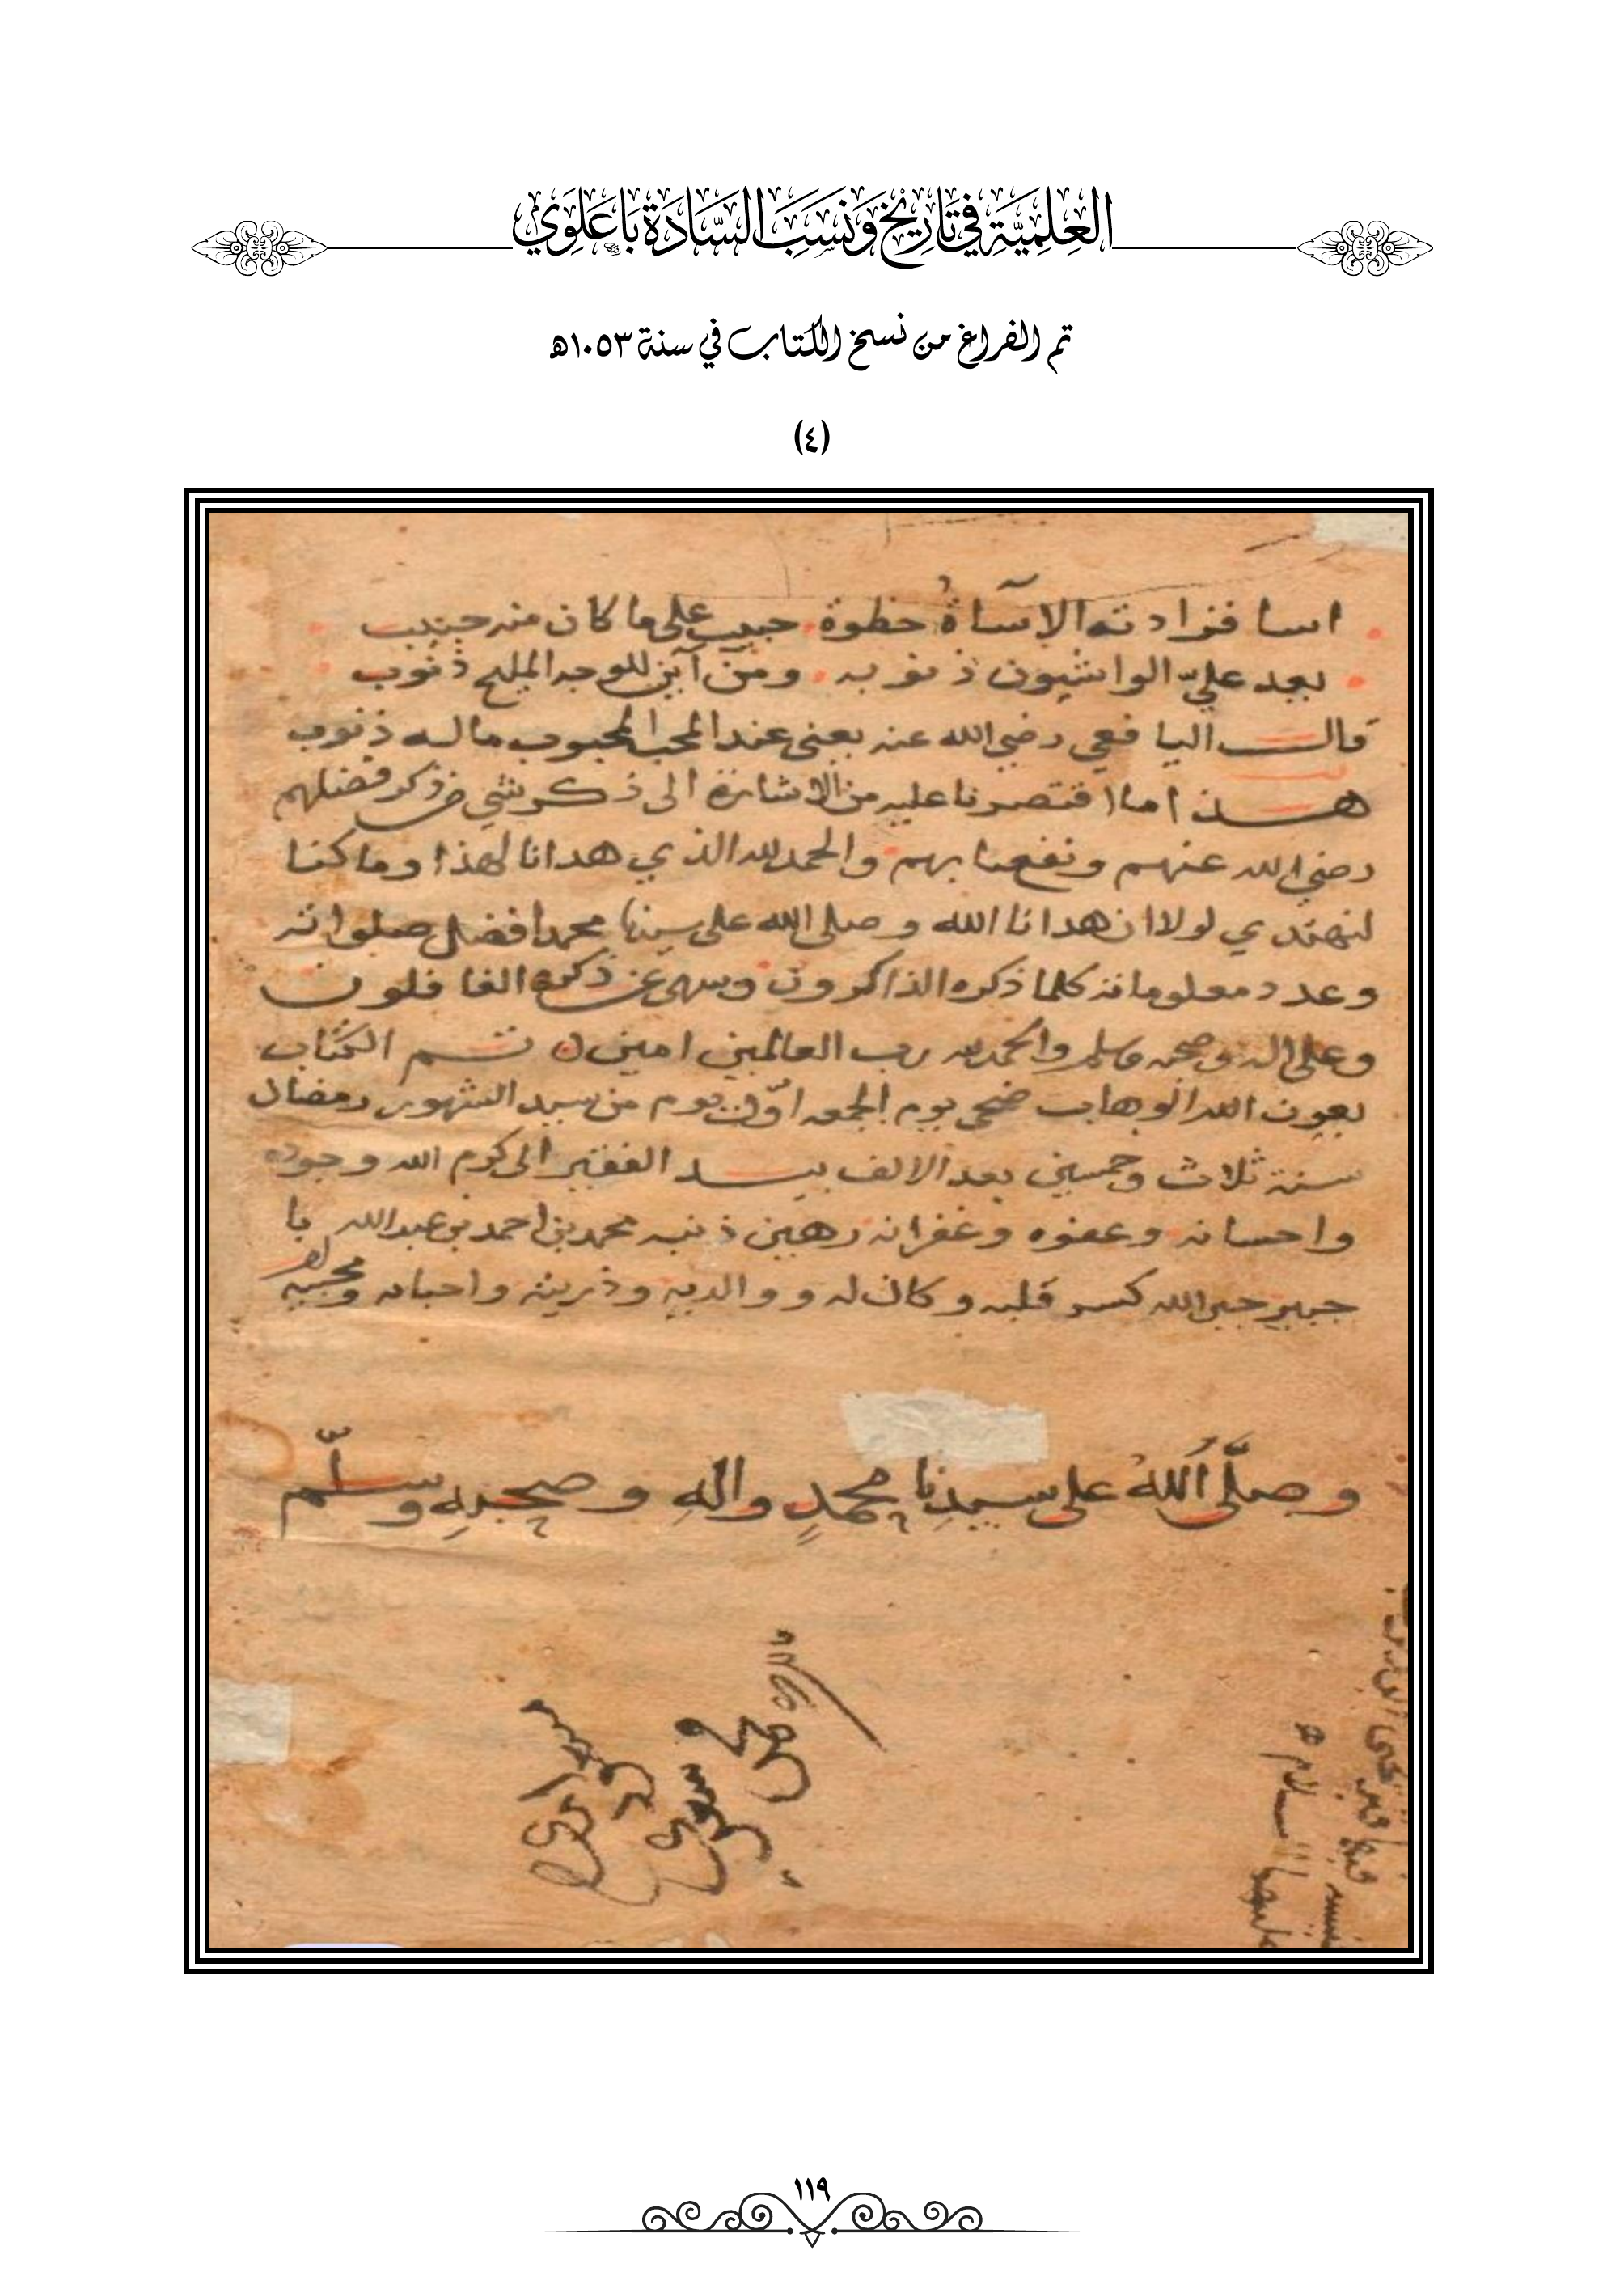 العِلمِيَّةِ فِي تَارِيخِ وَنَسَبِ السَّادَةِ بَاعَلَوِي
تم الفراغ من نسخ الكتاب في سنة ١٠٥٣هـ
(٤)
اسا فزادته الاآساةُ حظوة حبيب على ما كان منه حبيب
يعد عليّ الواشيون ذنوبه ومن آين للوجه المليح ذنوب
قال اليافعي رضي الله عنه يعني عند المحب المحبوب ماله ذنوب
هذا ما اقتصرنا عليه من الاشارة الى ذكر شي من ذكر فضلهم
رضي الله عنهم ونفعنا بهم والحمد لله الذي هدانا لهذا وما كنا
لنهتدي لولا ان هدانا الله وصلى الله على سيدنا محمد افضل صلواته
وعدد معلوماته كلما ذكره الذاكرون وسهى عن ذكره الغافلون
وعلى اله وصحبه وسلم والحمد لله رب العالمين امين تم الكتاب
بعون الله الوهاب ضحى يوم الجمعه اوّل يوم من سيد الشهور رمضان
سنة ثلاث وخمسين بعد الالف بيد الفقير الى كرم الله وجوده
واحسانه وعفوه وغفرانه رهين ذنبه محمد بن احمد بن عبدالله با
جبير جبر الله كسر قلبه وكان له ووالديه وذريته واحبابه ومحبيه
وصلَّى اللهُ على سيدِنا محمدٍ والهِ وصحبِهِ وسلّم
١١٩